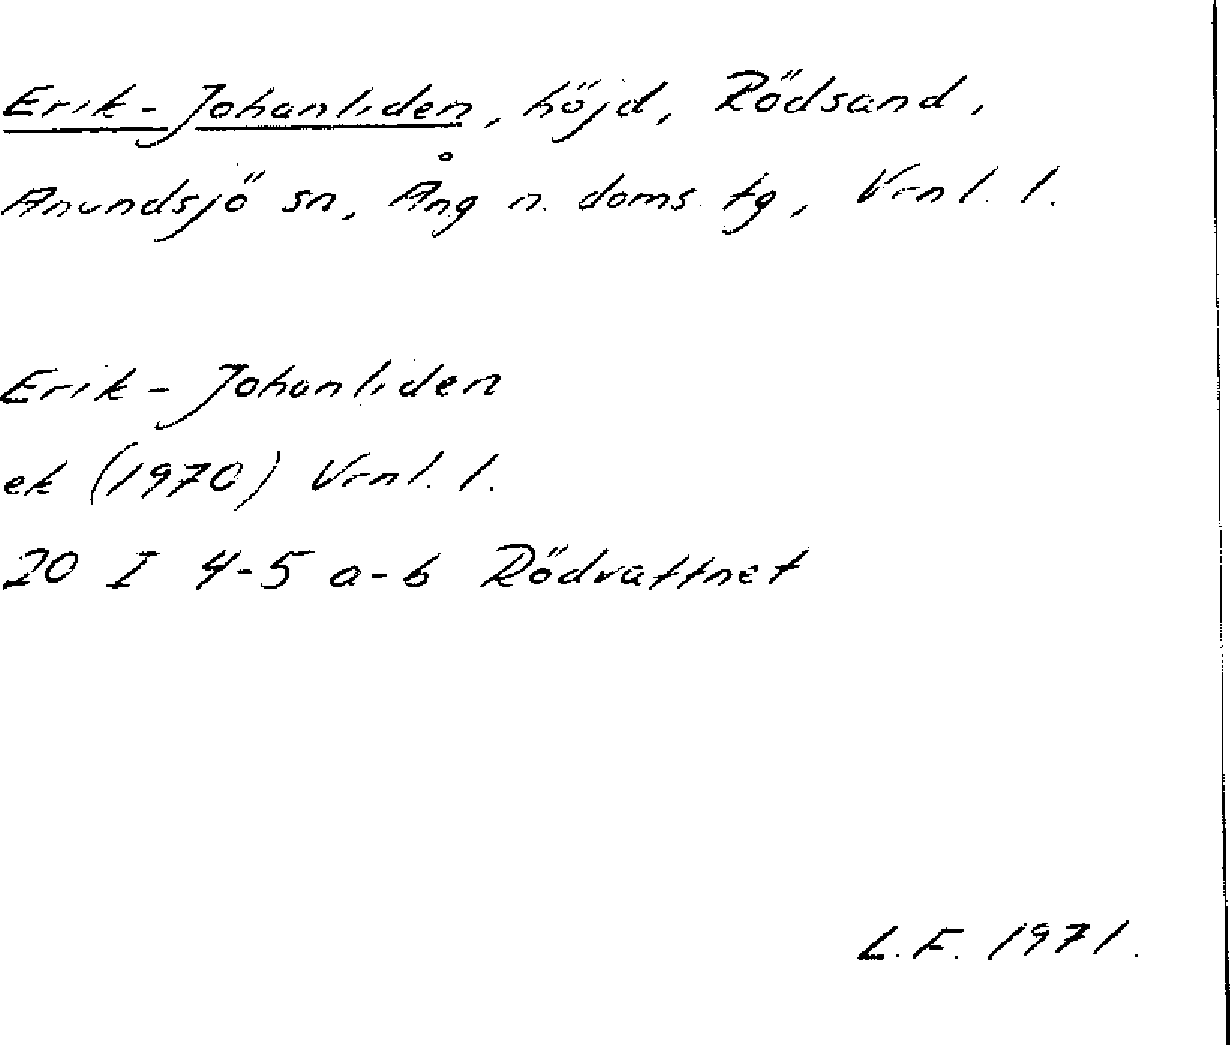 Erik-Johanliden, höjd, Rödsand,
Anundsjö sn, Ång n. doms. tg, Vrnl. l.
Erik-Johanliden
ek (1970) Vrnl. l.
20 I 4-5 a-b Rödvattnet
L.F. 1971.